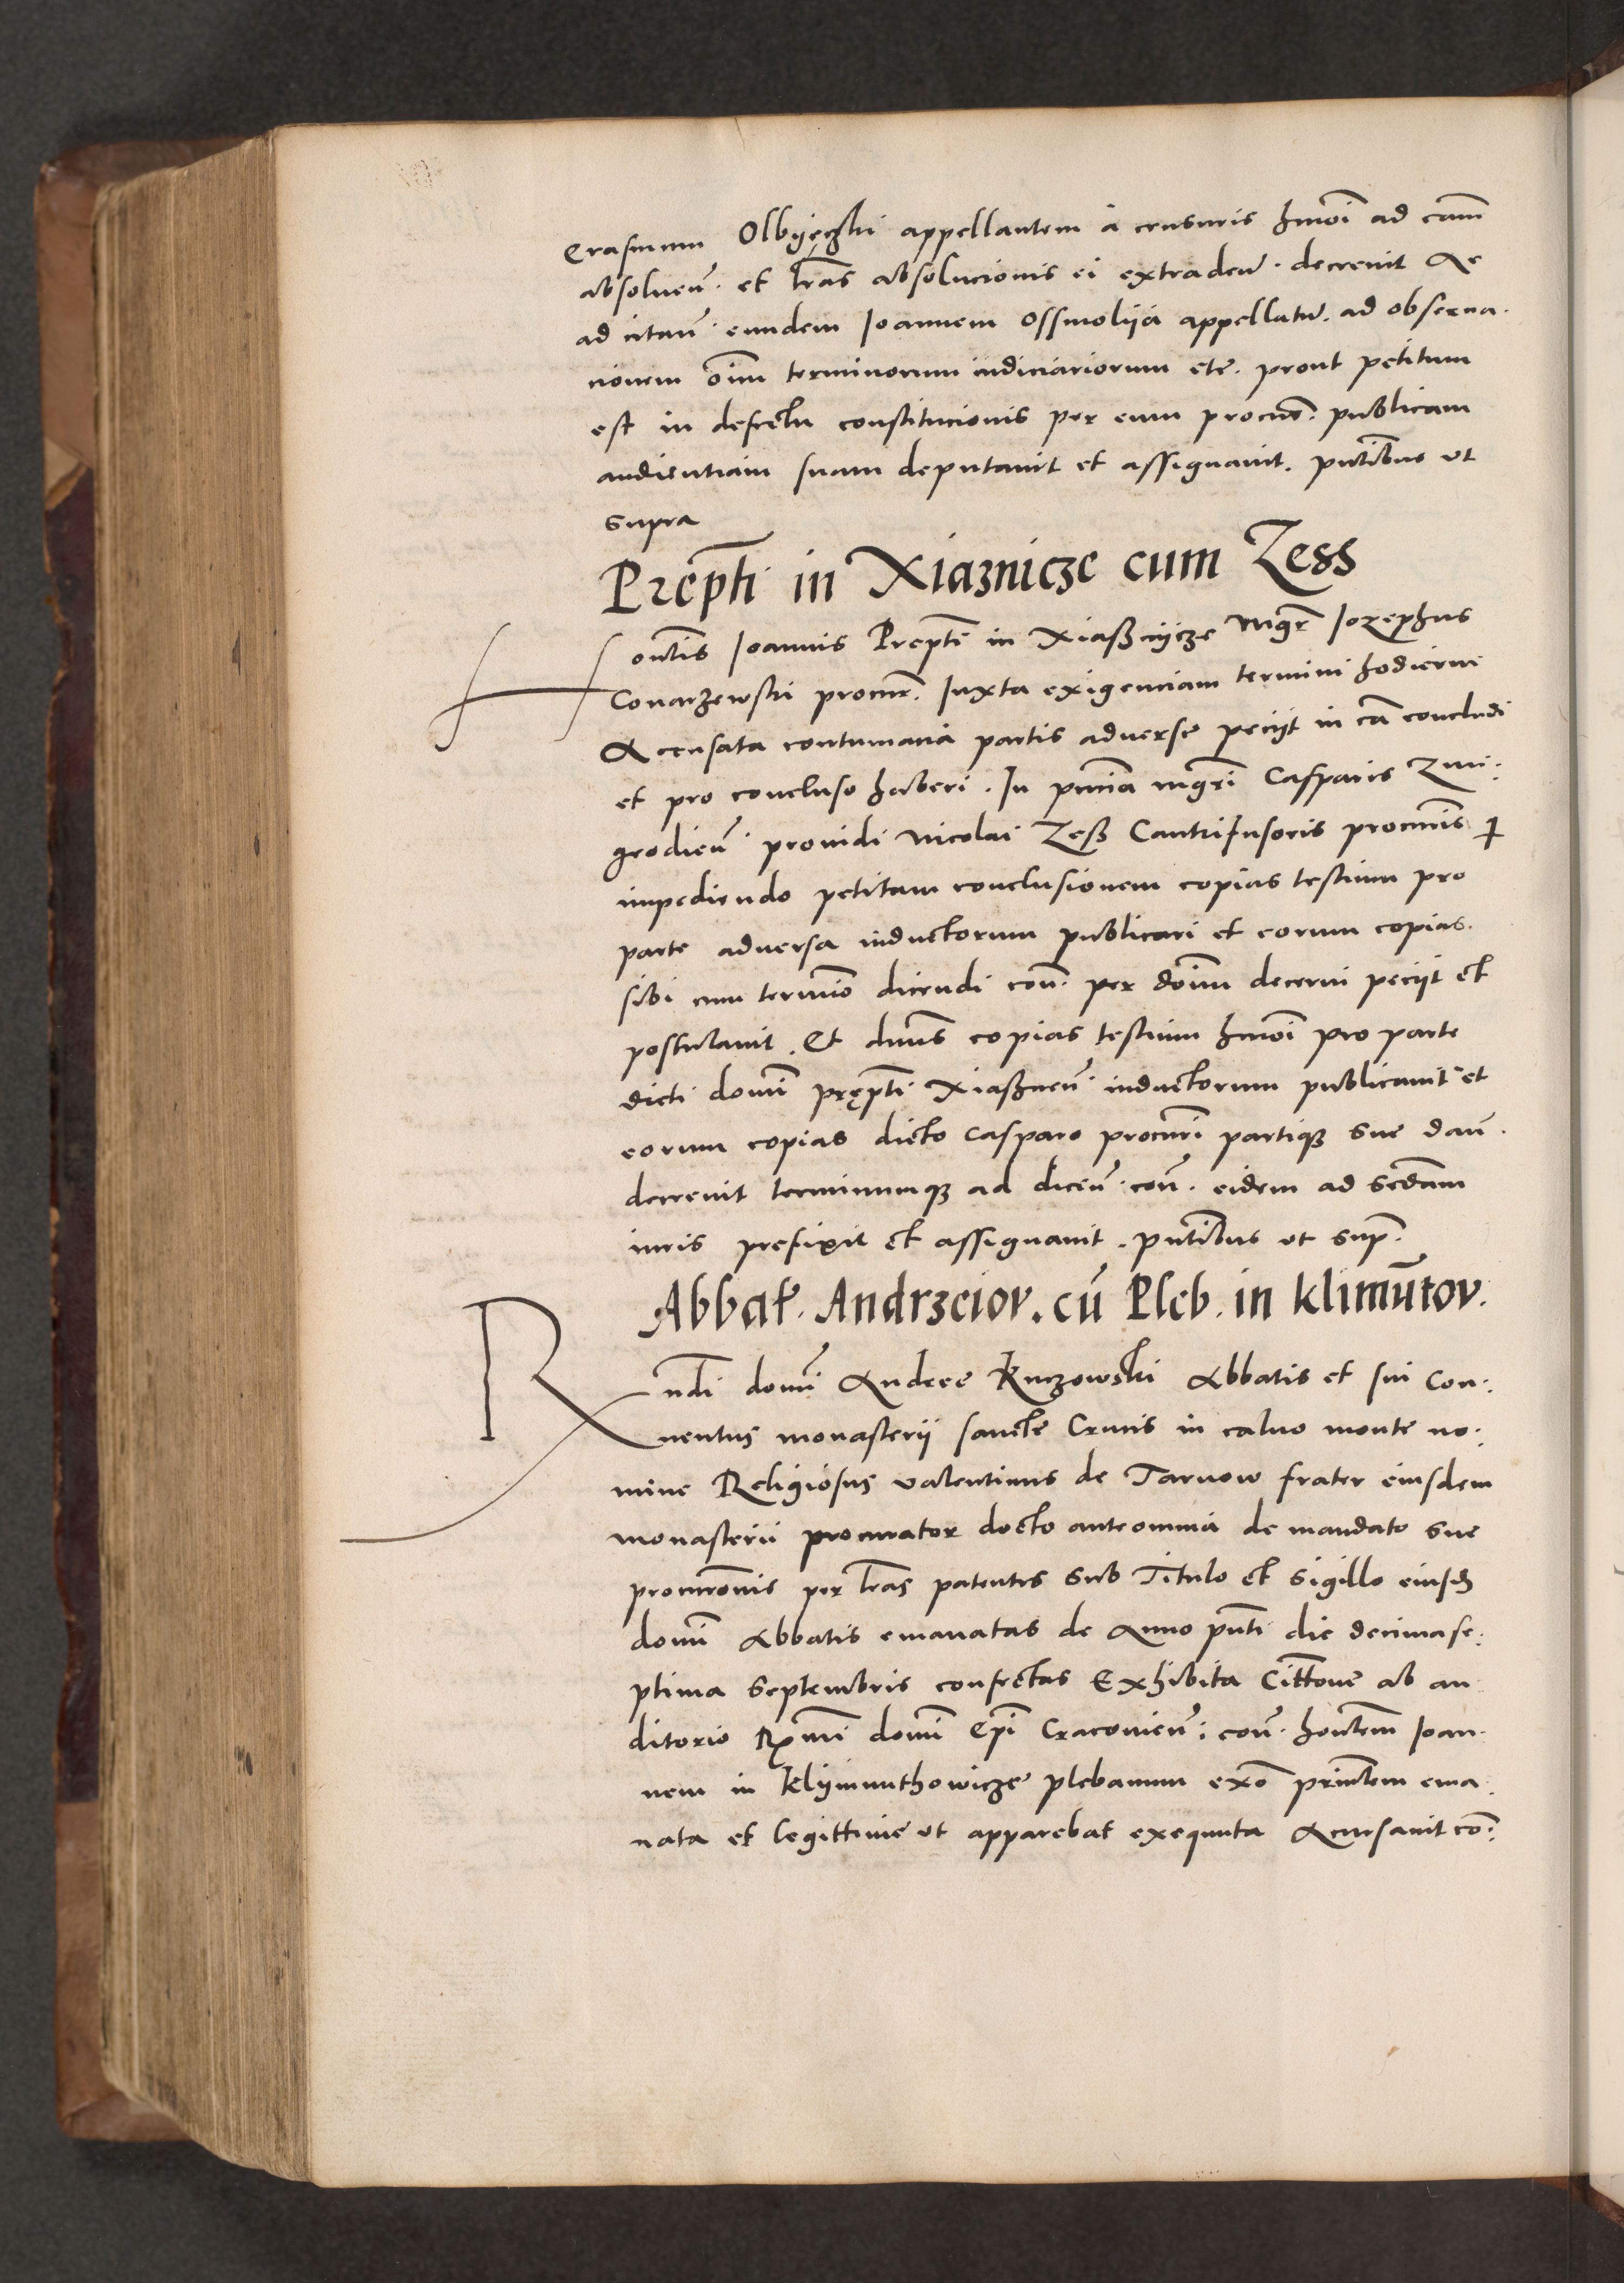 Erasmum Olbyęczki appellantem a censuris hmōi ad cām
absoluen̄. et lrās absolucionis ei extraden̄. decreuit Ac
ad citan̄ eundem Joannem Ossmolya appellatū. ad obserua.
cionem oīm terminorum iudiciariorum etc̄. prout petitum
est in defectu constitucionis per eum procur̄. publicam
audientiam suam deputauit et assignauit. pn̄tibus vt
supra
Prep̄ti in Xiaznicze cum Zess
Hon̄tis Joannis Prep̄ti in Xiaßnycze Mgr̄ Jozephus
Conarzewski procur̄. Juxta exigenciam termini hodierne
Accusata contumacia partis aduerse peciit in cā concludi
et pro concluso haberi. In pn̄cia mgrī Casparis Zmi:
grodien̄ prouidi Nicolai Zeß Cantrifusoris procuris
impediendo petitam conclusionem copias testium pro
parte aduersa inductorum publicari et eorum copias.
sibi cum termīo dicendi con̄. per doīm decerni peciit et
postulauit. Et dn̄us copias testium hmōi pro parte
dicti domī pręp̄ti Xiaßnen̄ inductorum publicauit et
eorum copias dicto Casparo procuri partiqȝ sue dan̄.
decreuit terminumqȝ ad dicen̄. con̄. eidem ad scd̄am
iuris prefixit et assignauit. pn̄tibus vt sup̄.
Abbat̄. Andrzeiov. cū Pleb. in klimūtov.
Rndi domī Andree Kuczowski Abbatis et sui Con:
uentus monasterii sancte Crucis in caluo monte no:
mine Religiosus valentinus de Tarnow frater eiusdem
monasterii procurator docto anteomnia de mandato sue
procurōnis per lrās patentes sub Titulo et sigillo eiusd̄
domī Abbatis emanatas de Anno pn̄ti die decimase:
ptima Septembris confectas Exhibita Cittōne ab au
ditorio Rmi domī Epī Cracouien̄: con̄. hon̄tem Joan:
nem in klymunthowicze plebanum exō prin̄tem ema.
nata et legittime vt apparebat exequuta Accusauit cō: